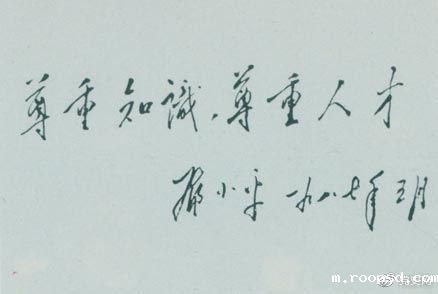 尊重知識,尊重人才
鄧小平 一九八七年五月
m.roopsd.com